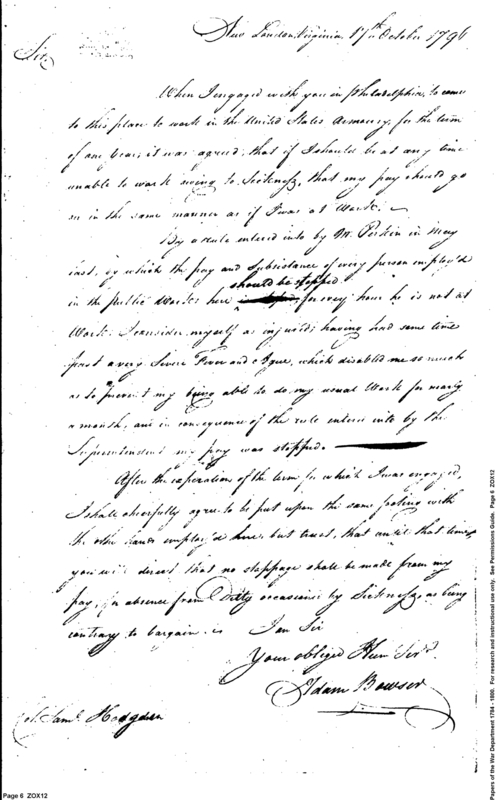 New London, Virginia 17th October 1796
Sir,
When I engaged with you in Philadelphia, to come
to this place to work in the United States Armoury, for the term
of one year, it was agreed, that if I should be at any time
unable to work owing to Sickness, that my pay should go
on in the same manner as if I was at Work.
By a rule entered into by Mr. Perkin in May
last, by which the pay and Subsistance of every person employ'd
should be stopped
in the public Works here for every hour he is not at
Work: I consider myself as injured; having had some time
past a very Severe Fever and Ague, which disabled me so much
as to prevent my being able to do my usual Work for nearly
a month, and in consequence of the rule entered into by the
Superintendent my pay was stopped.
After the expiration of the term for which I was engaged,
I shall cheerfully agree to be put upon the same footing with
the other hands employ'd here, but trust, that until that time,
you will direct that no stoppage shall be made from my
pay, for absence from Duty occasioned by Sickness, as being
contrary to bargain.
I am Sir
Your obliged Hum Ser
Adam Bowser
Saml. Hodgden
Page 6 ZOX12
Papers of the War Department 1784 - 1800. For research and instructional use only. See Permissions Guide. Page 6 ZOX12